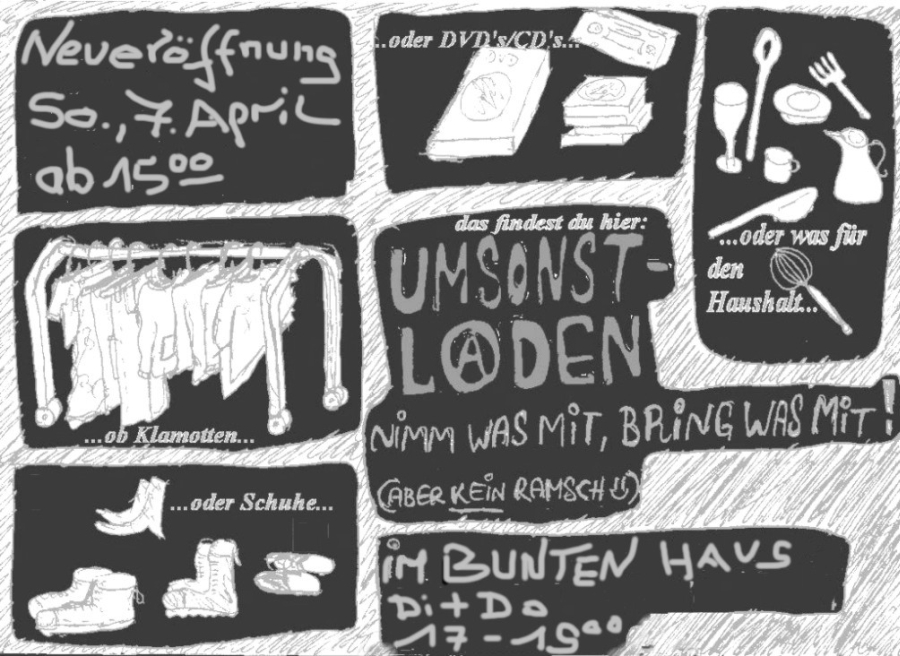 Neueröffnung
So., 7. April
ab 15⁰⁰
...oder DVD's/CD's...
DVD
...oder was für
den
Haushalt...
...ob Klamotten...
das findest du hier:
UMSONST-
LADEN
NIMM WAS MIT, BRING WAS MIT!
(ABER KEIN RAMSCH☺)
...oder Schuhe...
IM BUNTEN HAUS
Di + Do
17 - 19⁰⁰